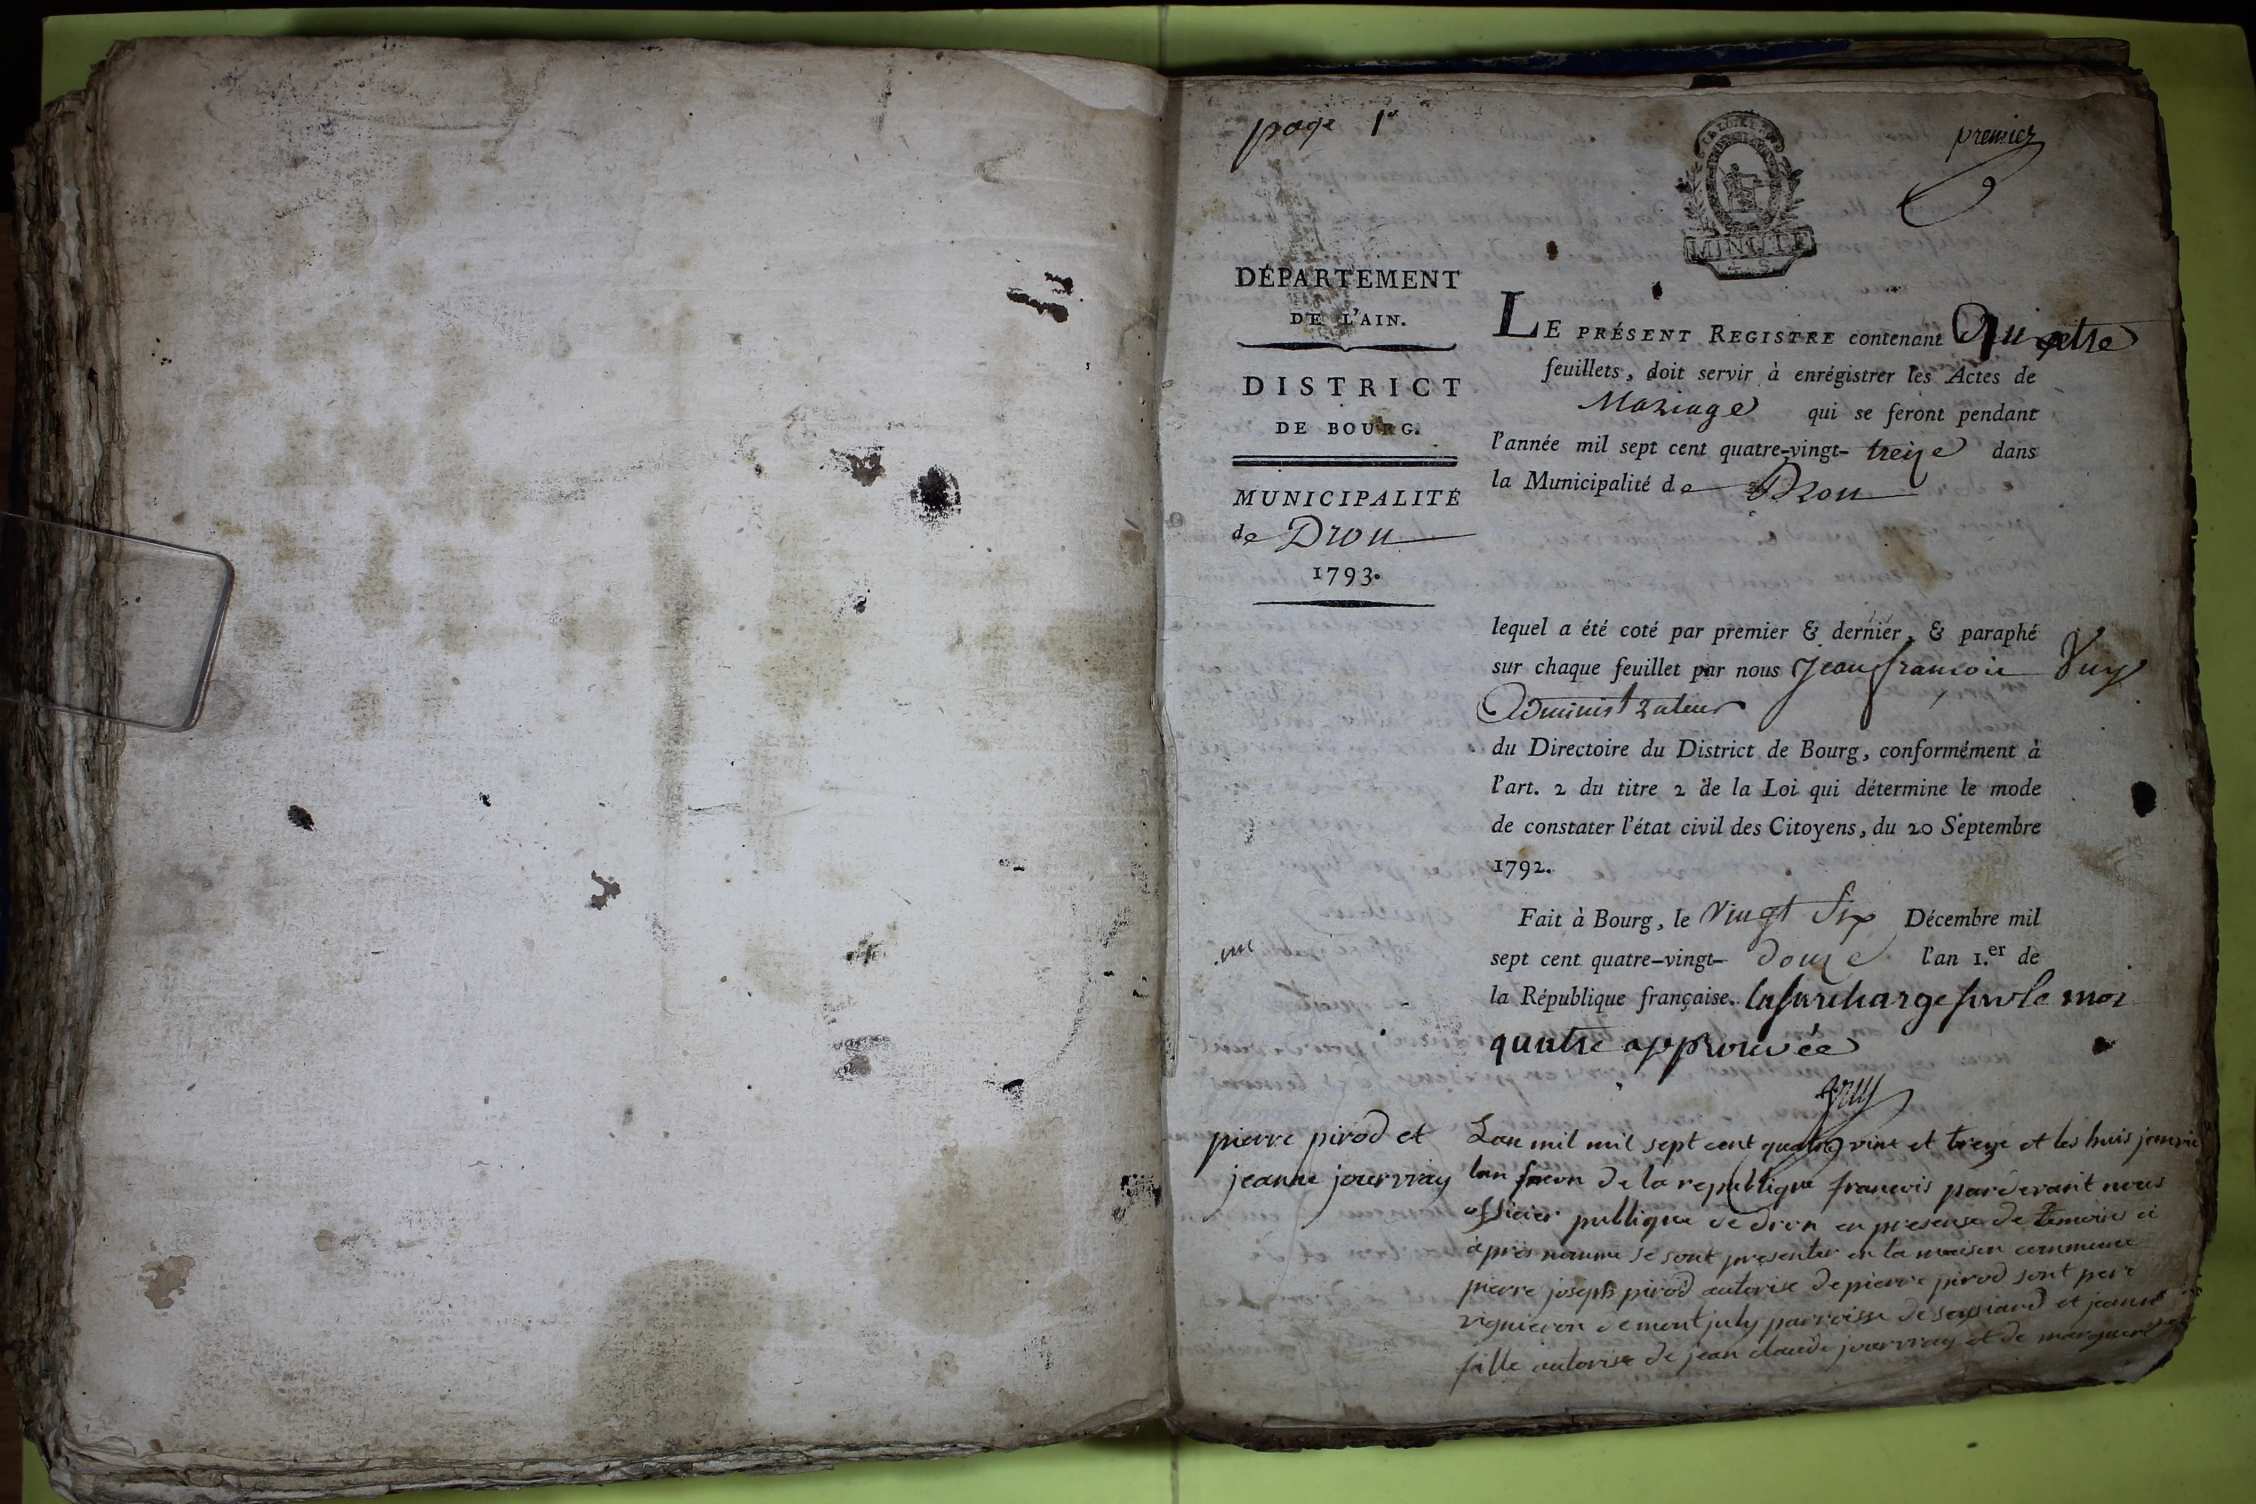 page 1er
premier
MINUTE
DÉPARTEMENT
DE L'AIN.
DISTRICT
DE BOURG.
MUNICIPALITÉ
de Drou
1793.
LE PRÉSENT REGISTRE contenant Quatre
feuillets, doit servir à enrégistrer les Actes de
Mariage qui se feront pendant
l'année mil sept cent quatre-vingt- treize dans
la Municipalité de Drou
lequel a été coté par premier & dernier, & paraphé
sur chaque feuillet par nous Jean françois Vuy
Administrateur
du Directoire du District de Bourg, conformément à
l'art. 2 du titre 2 de la Loi qui détermine le mode
de constater l'état civil des Citoyens, du 20 Septembre
1792.
Fait à Bourg, le Vingt Six Décembre mil
sept cent quatre-vingt- douze l'an 1.er de
la République française. la surcharge sur le mot
quatre approuvée
Vuy
pierre pirod et
jeanne jourvray
Lan mil mil sept cent quatre vint et treze et les huis janvie
lan de la republique francois pardevant nous
officier publique de dron en presense de temoins ci
apres nomme se sont presenter en la maison commune
pierre joseph pirod autorise de pierre pirod sont pere
vigneron de montjuly parroisse de et jeanne
fille autorise de jean claude jourvray et de